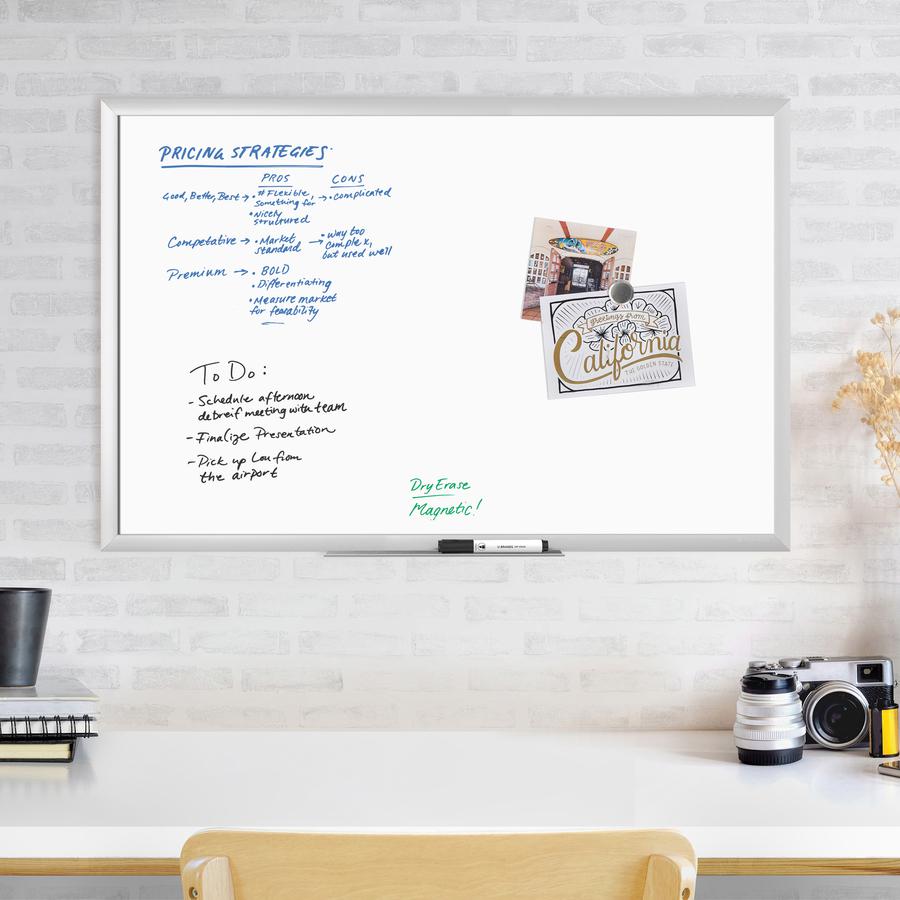 PRICING STRATEGIES
PROS CONS
Good, Better, Best → • # Flexible, → • Complicated
something for
• Nicely
structured
Competative → • Market → • way too
standard complex,
but used well
Premium → • BOLD
• Differentiating
• Measure market
for feasability
To Do:
- Schedule afternoon
debreif meeting with team
- Finalize Presentation
- Pick up Lou from
the airport
Dry Erase
Magnetic!
greetings from
California
THE GOLDEN STATE
U BRANDS